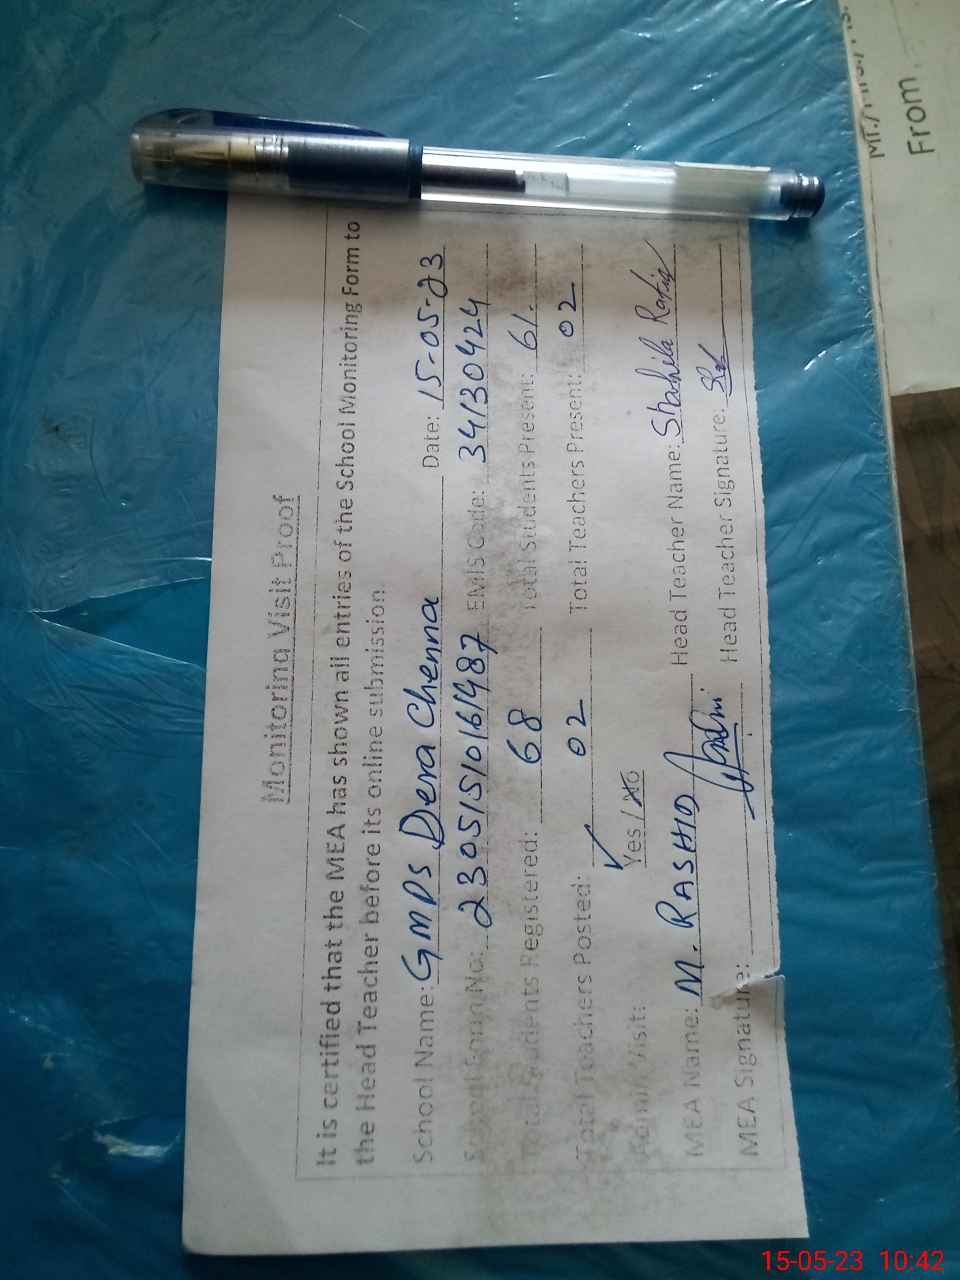 Monitoring Visit Proof
It is certified that the MEA has shown all entries of the School Monitoring Form to
the Head Teacher before its online submission.
School Name: GMPS Dera Chenna Date: 15-05-23
School Form No: 23051510161487 EMIS Code: 34130424
Total Students Registered: 68 Total Students Present: 61.
Total Teachers Posted: 02 Total Teachers Present: 02
Visit: Yes / No
MEA Name: M. RASHID Head Teacher Name: Shahila Rafiq
MEA Signature: Head Teacher Signature:
From
15-05-23 10:42